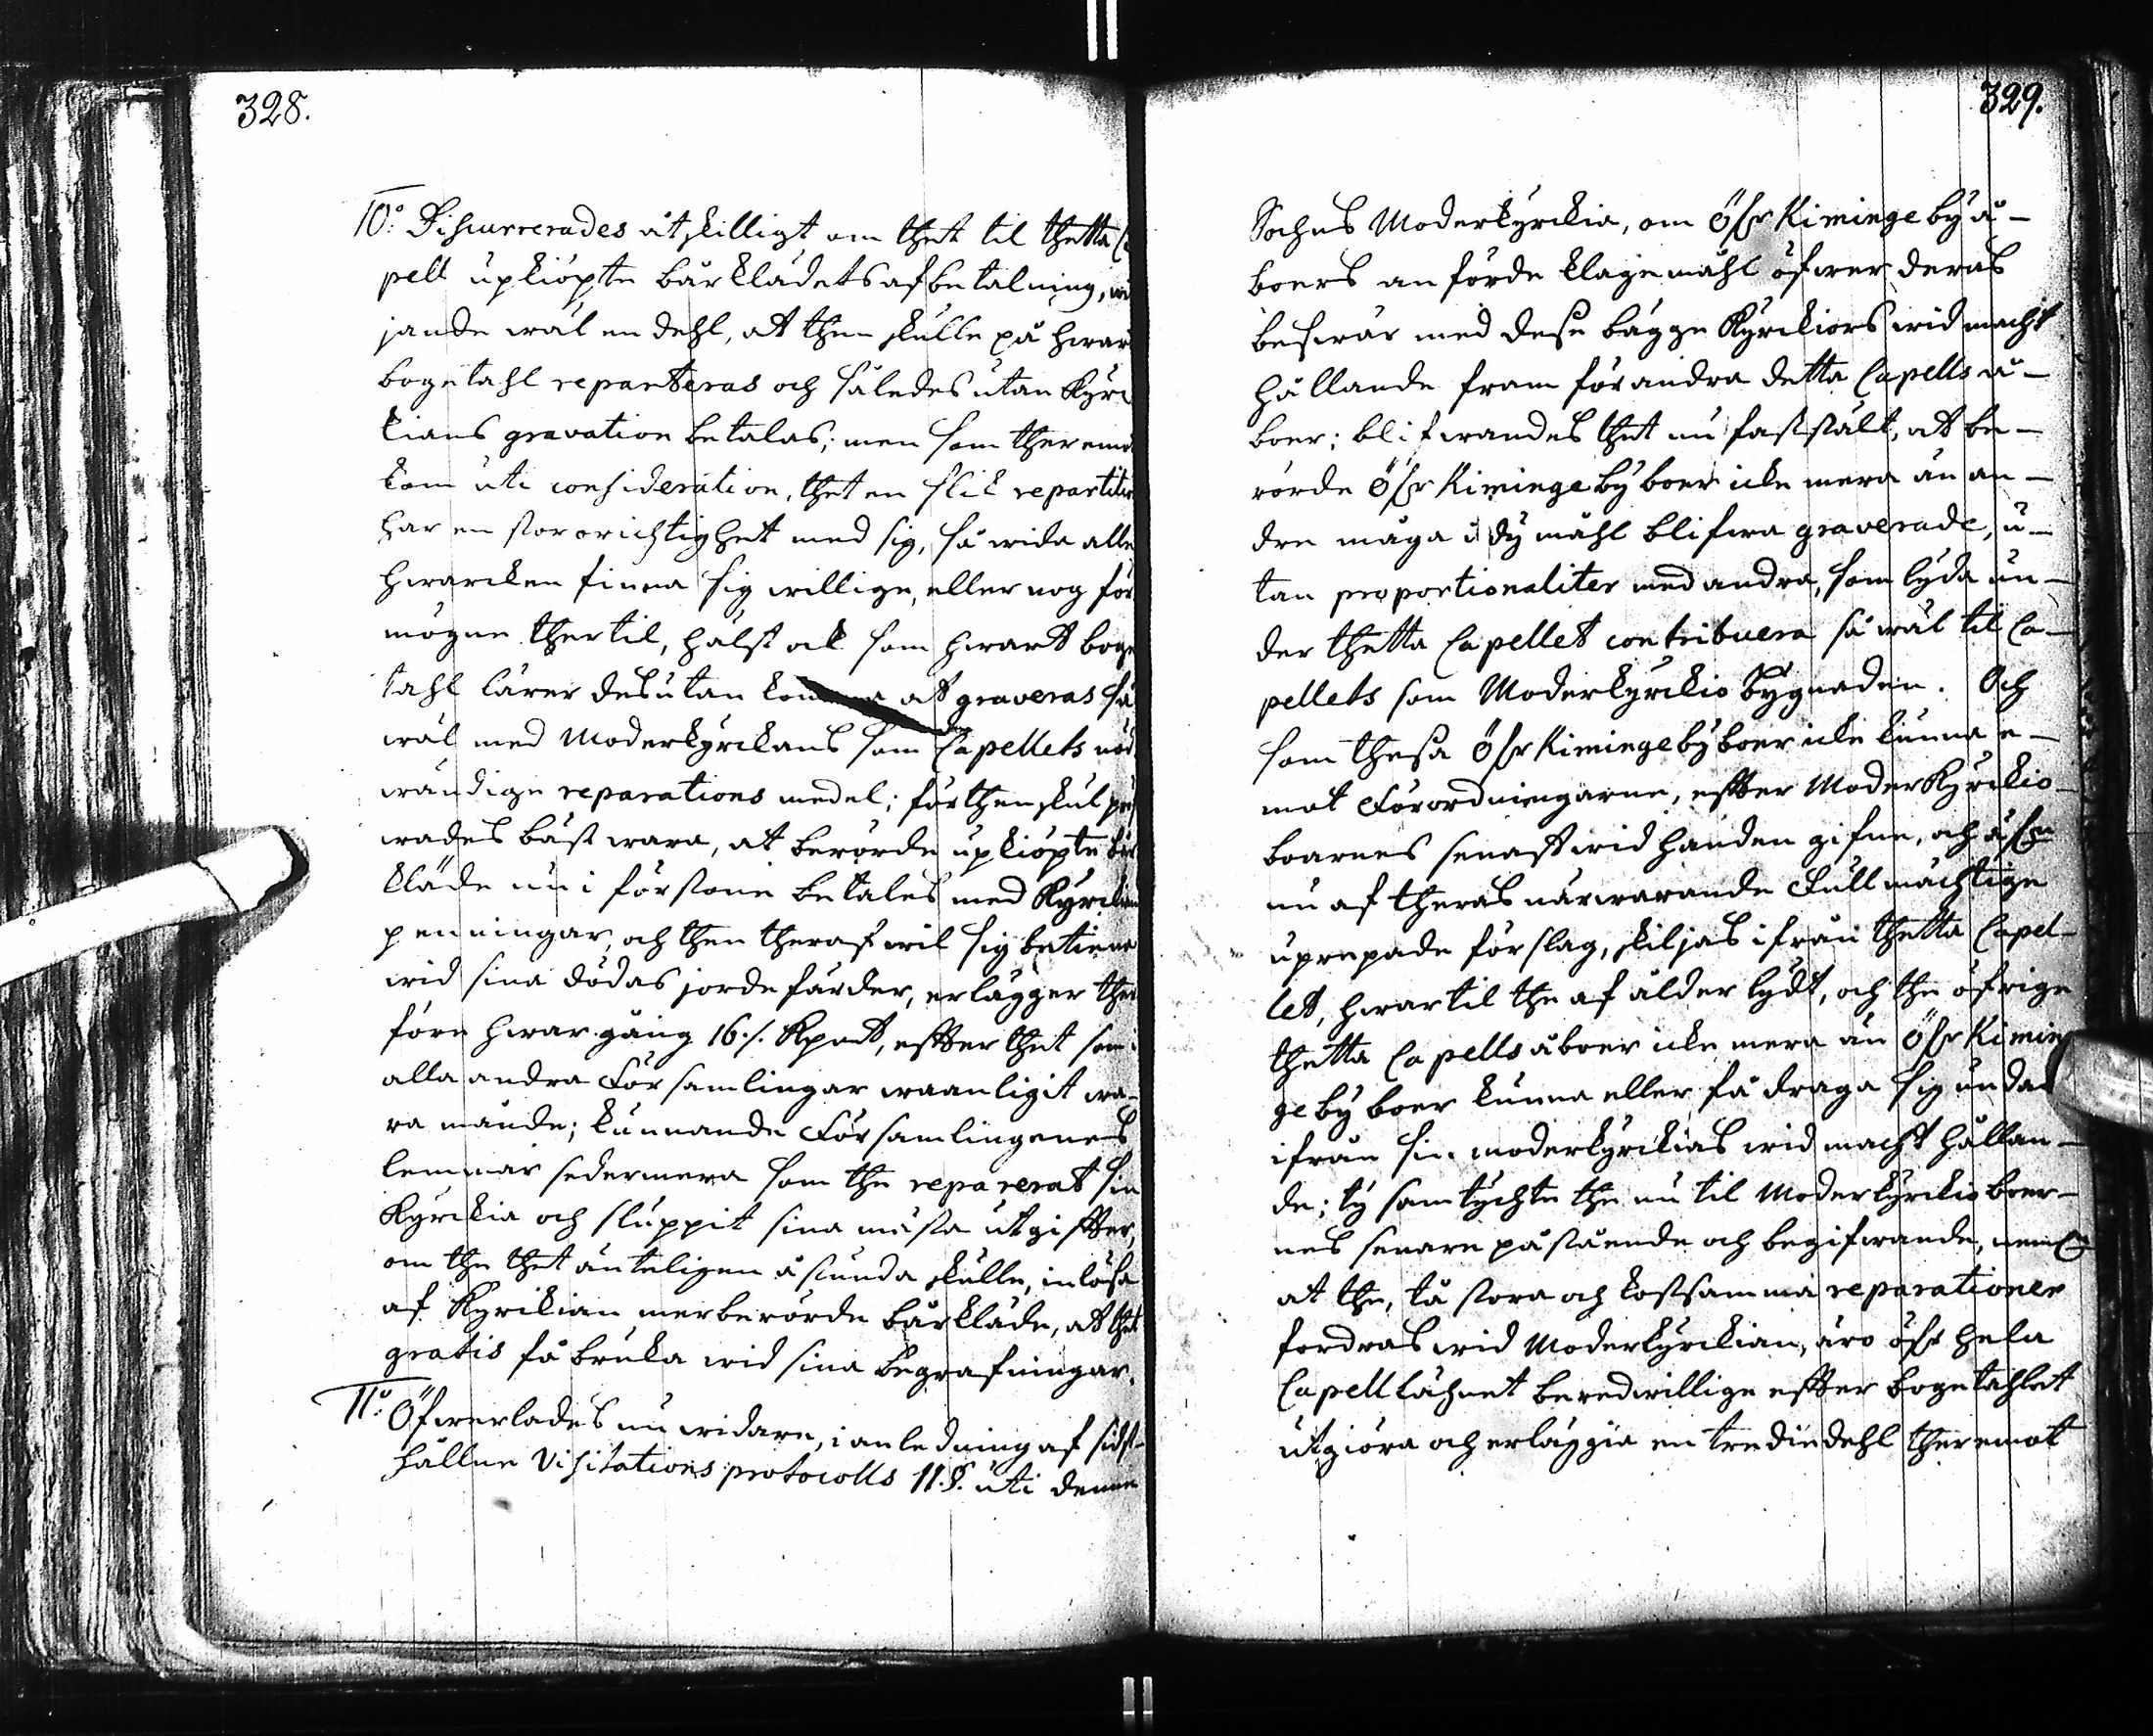 328.
10:o Discurrerades åtskilligt om thet til thetta Ca
pell upkiöpte bårklädets afbetalning,
jande wäl en dehl, at then skulle på hwart
bogetahl reparteras och således utan Kyrc
kians gravation betalas; men som theremot
kom uti consideration, thet en slik repartition
har en stor orichtighet med sig, så wida alle
hwarcken finna sig willige, eller nog för
mögne thertil, hälst ock som hwart boge
tahl lärer desutan komma at graveras så
wäl med Moderkyrckans som Capellets nöd
wändige reparations medel; för then skul prö
wades bäst wara, at berörde upkiöpte bår
kläde nu i förstone betales med Kyrckians
penningar, och then theraf wil sig betiena
wid sina dödas jordefärder, erlägger ther
före hwar gång 16./. Kpmt, effter thet som i
alla andra Församlingar waanligit wa-
ra månde; kunnande Församlingenes
lemmar sedermera som the reparerat sin
Kyrckia och sluppit sina mästa utgiffter,
om the thet änteligen åstunda skulle, inlösa
af Kyrckian merberörde bårkläde, at thet
gratis få bruka wid sina begrafningar.
11:o Öfwerlades nu widare, i anledning af sidst-
hållne Visitations protocolls 11.§. uti denne
329.
Sochns Moderkyrckia, om Öfr Kiminge by å-
boers anförde klagemåhl öfwer deras
beswär med dese bägge Kyrckiors wid macht
hållande fram för andra detta Capells å-
boer; blifwandes thet nu fastsält, at be-
rörde Öfr Kiminge byboer icke mera än an-
dre måga i dy måhl blifwa graverade, u-
tan proportionaliter med andra, som lyda un-
der thetta Capellet contribuera så wäl til Ca-
pellets som Moderkyrckio bygnaden. Och
som thessa Öfr Kiminge byboer icke kunna e-
mot Förordningarne, effter Moder Kyrckio-
boarnes senast wid handen gifne, och äfwen
nu af theras närwarande Fullmächtige
uprepade förslag, skiljas ifrån thetta Capel-
let, hwartil the af ålder lydt, och the öfrige
thetta Capells åboer icke mera än Öfr Kimin
ge byboer kunna eller få draga sig undan
ifrån sin moderkyrckias wid macht hållan-
de; ty samtychte the nu til Moderkyrckioboer-
nes senare påstående och begifwande, neml.
at the, tå stora och kostsamma reparationer
fordras wid Moderkyrckian, äro öfr hela
Capell Lähnet beredwillige effter bogetahlet
utgiöra och erläggia en trediedehl theremot